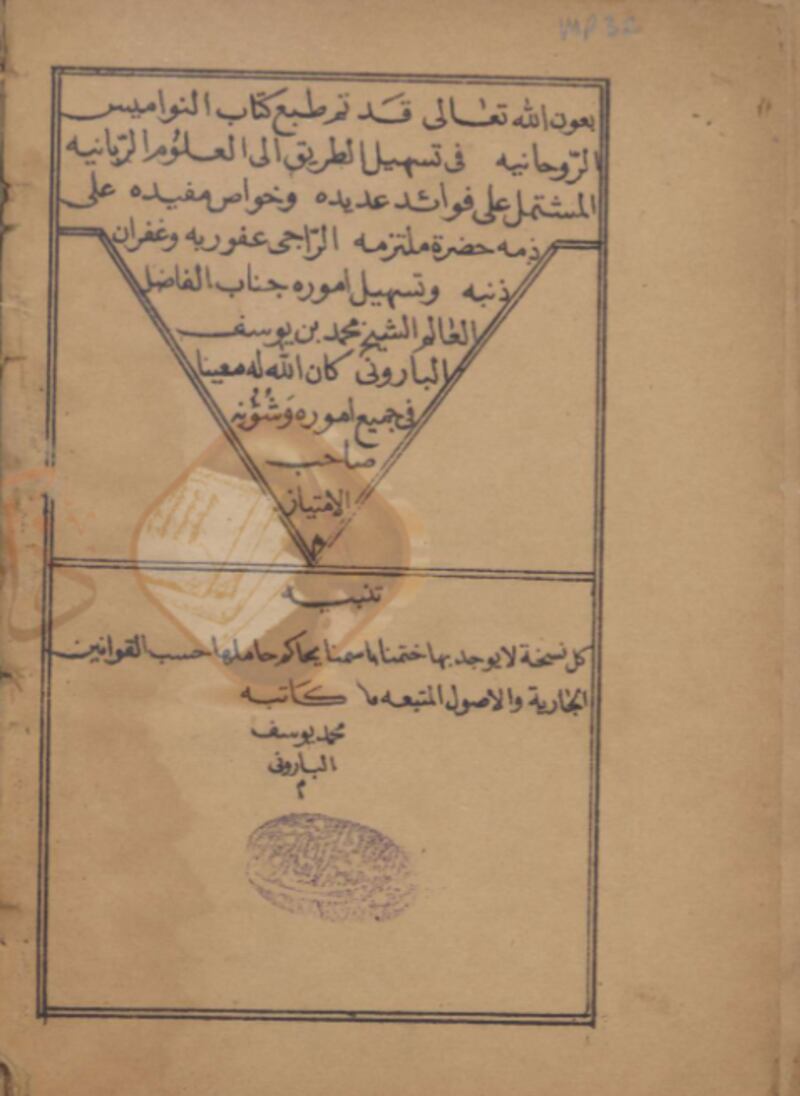 بعون الله تعالى قد تم طبع كتاب النواميس
الرّوحانيه في تسهيل الطريق الى العلوُم الرّبانيه
المشتمل على فوائد عديده وخواص مفيده على
ذمه حضرة ملتزمه الرّاجى عفو ربه وغفران
ذنبه وتسهيل اموره جناب الفاضل
العالم الشيخ محمد بن يوسف
البارونى كان الله له معينا
فى جميع اموره وَشُؤُنه
صاحب
الامتياز
م
تنبيه
كل نسخة لا يوجد بها ختمنا باسمنا يحاكم حاملها حسب القوانين
الجارية والاصول المتبعه كاتبه
محمد يوسف
البارونى
م